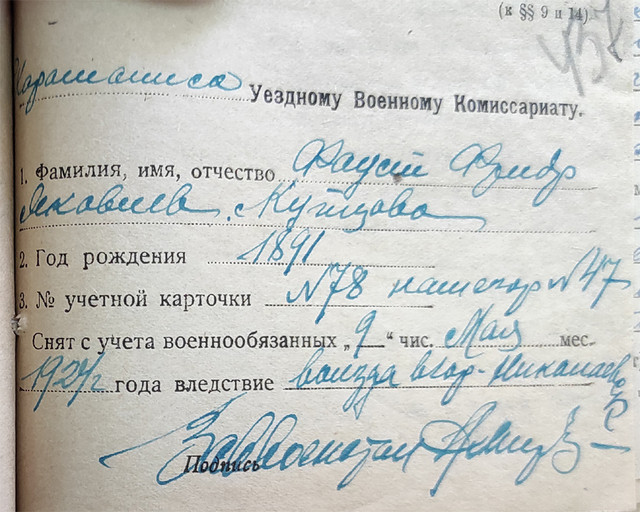 (к §§ 9 и 14)
437
Уездному Военному Комиссариату.
1. Фамилия, имя, отчество Фауст Фридр
Яковлев. Купцова
2. Год рождения 1891
3. № учетной карточки N78 N47
Снят с учета военнообязанных „9“ чис. Мая мес.
1924 г года вледствие выезда в гор-Николаев
Подпись